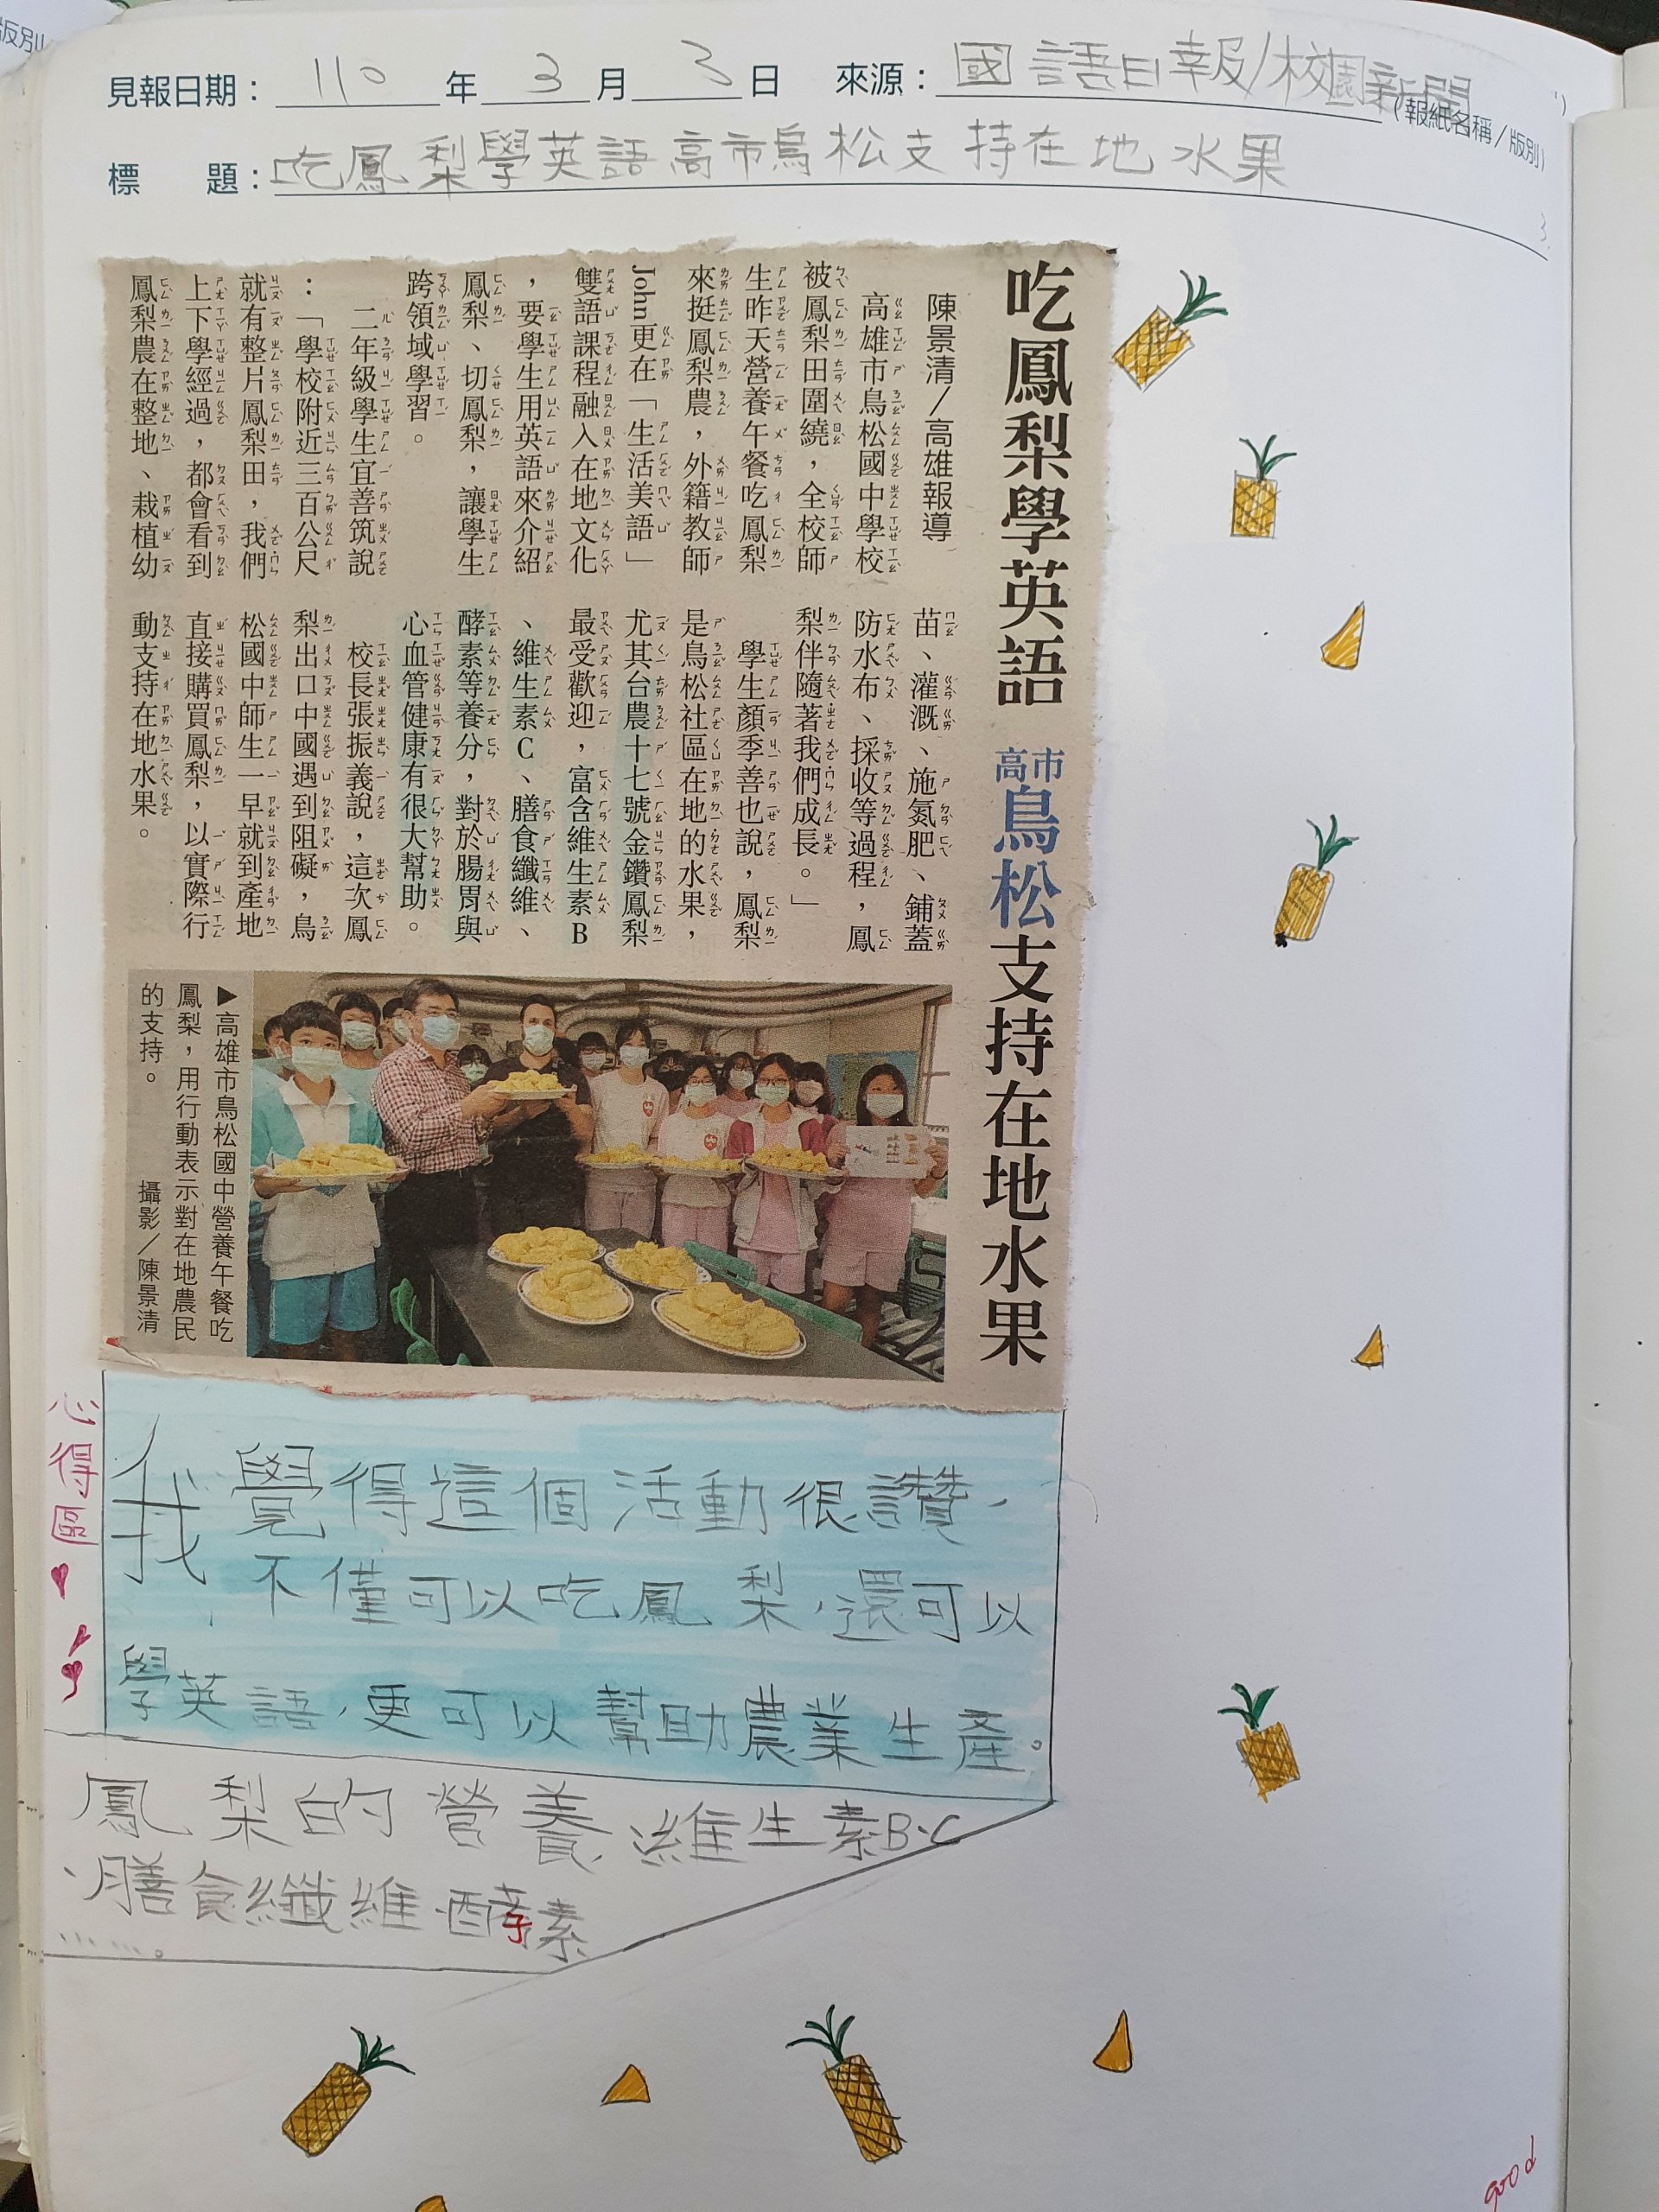 見報日期：110年3月3日 來源：國語日報/校園新聞
（報紙名稱/版別）
標題：吃鳳梨學英語高市鳥松支持在地水果
吃鳳梨學英語 高市鳥松支持在地水果
陳景清／高雄報導
高雄市鳥松國中學校
被鳳梨田圍繞，全校師
生昨天營養午餐吃鳳梨
來挺鳳梨農，外籍教師
John更在「生活美語」
雙語課程融入在地文化
，要學生用英語來介紹
鳳梨、切鳳梨，讓學生
跨領域學習。
二年級學生宜善筑說
：「學校附近三百公尺
就有整片鳳梨田，我們
上下學經過，都會看到
鳳梨農在整地、栽植幼
苗、灌溉、施氮肥、鋪蓋
防水布、採收等過程，鳳
梨伴隨著我們成長。」
學生顏季善也說，鳳梨
是鳥松社區在地的水果，
尤其台農十七號金鑽鳳梨
最受歡迎，富含維生素B
、維生素C、膳食纖維、
酵素等養分，對於腸胃與
心血管健康有很大幫助。
校長張振義說，這次鳳
梨出口中國遇到阻礙，鳥
松國中師生一早就到產地
直接購買鳳梨，以實際行
動支持在地水果。
▶高雄市鳥松國中營養午餐吃
鳳梨，用行動表示對在地農民
的支持。 攝影／陳景清
心得區
我覺得這個活動很讚，
不僅可以吃鳳梨，還可以
學英語，更可以幫助農業生產。
鳳梨的營養：維生素B、C
、膳食纖維、酵素
……。
good